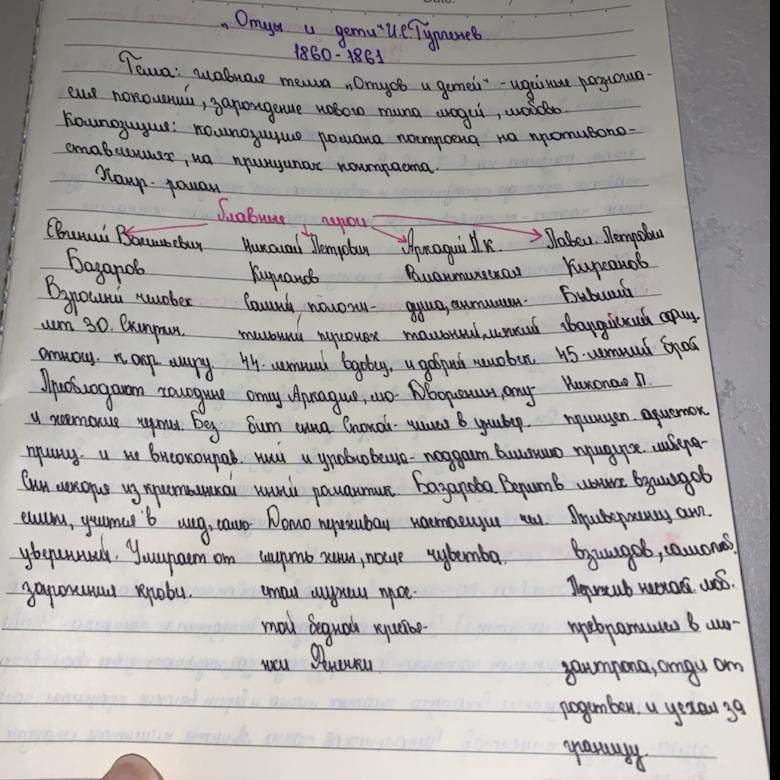 „Отцы и дети" И.С.Тургенев
1860-1861
Тема: главная тема „Отцов и детей" - идейные разногла-
сия поколений, зарождение нового типа людей, любовь.
Композиция: композиция романа построена на противопо-
ставлениях, на принципах контраста.
Жанр - роман
Главные герои
Евгений Васильевич
Базаров
Взрослый человек
лет 30. Скептич.
отнош. к окр. миру.
Преобладают холодные
и жестокие черты. Без-
принц. и не
Сын лекаря из крестьянской
семьи, учится в мед, само-
уверенный. Умирает от
заражения крови.
Николай Петрович
Кирсанов
Самый положи-
тельный персонаж
44-летний вдовец,
отец Аркадия, лю-
бит сына. Спокой-
ный и уровновеше-
нный романтик.
Долго переживал
смерть жены, после
стал мужем прос-
той бедной кресть-
нки Фенечки.
Аркадий Н.К.
Романтическая
душа, сентимен-
тальный, мягкий
и добрый человек.
Дворянин, сту-
чился в универ.
поддает влиянию
Базарова. Верит в
настоящие чел.
чувства.
Павел Петрович
Кирсанов
Бывший
гвардейский офиц.
45-летний брат
Николая П.
принцеп. аристок.
придерж. либера-
льных взглядов
Приверженец анг.
взглядов, самолюб.
Пережив несчаст. люб.
превратился в ми-
зантропа, отда от
родствен. и уехал за
границу.